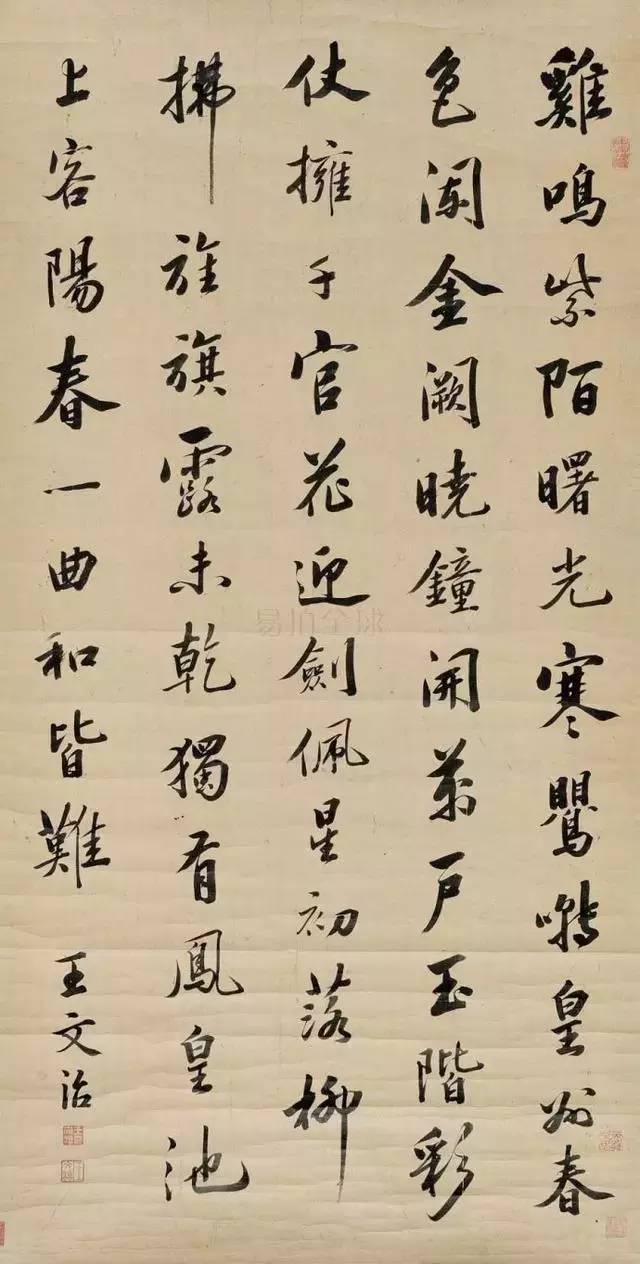 雞鳴紫陌曙光寒鸎囀皇州春
色闌金闕曉鐘開萬戶玉階彩
仗擁千官花迎劍佩星初落柳
拂旌旗露未乾獨有鳳皇池
上客陽春一曲和皆難 王文治
易拍全球